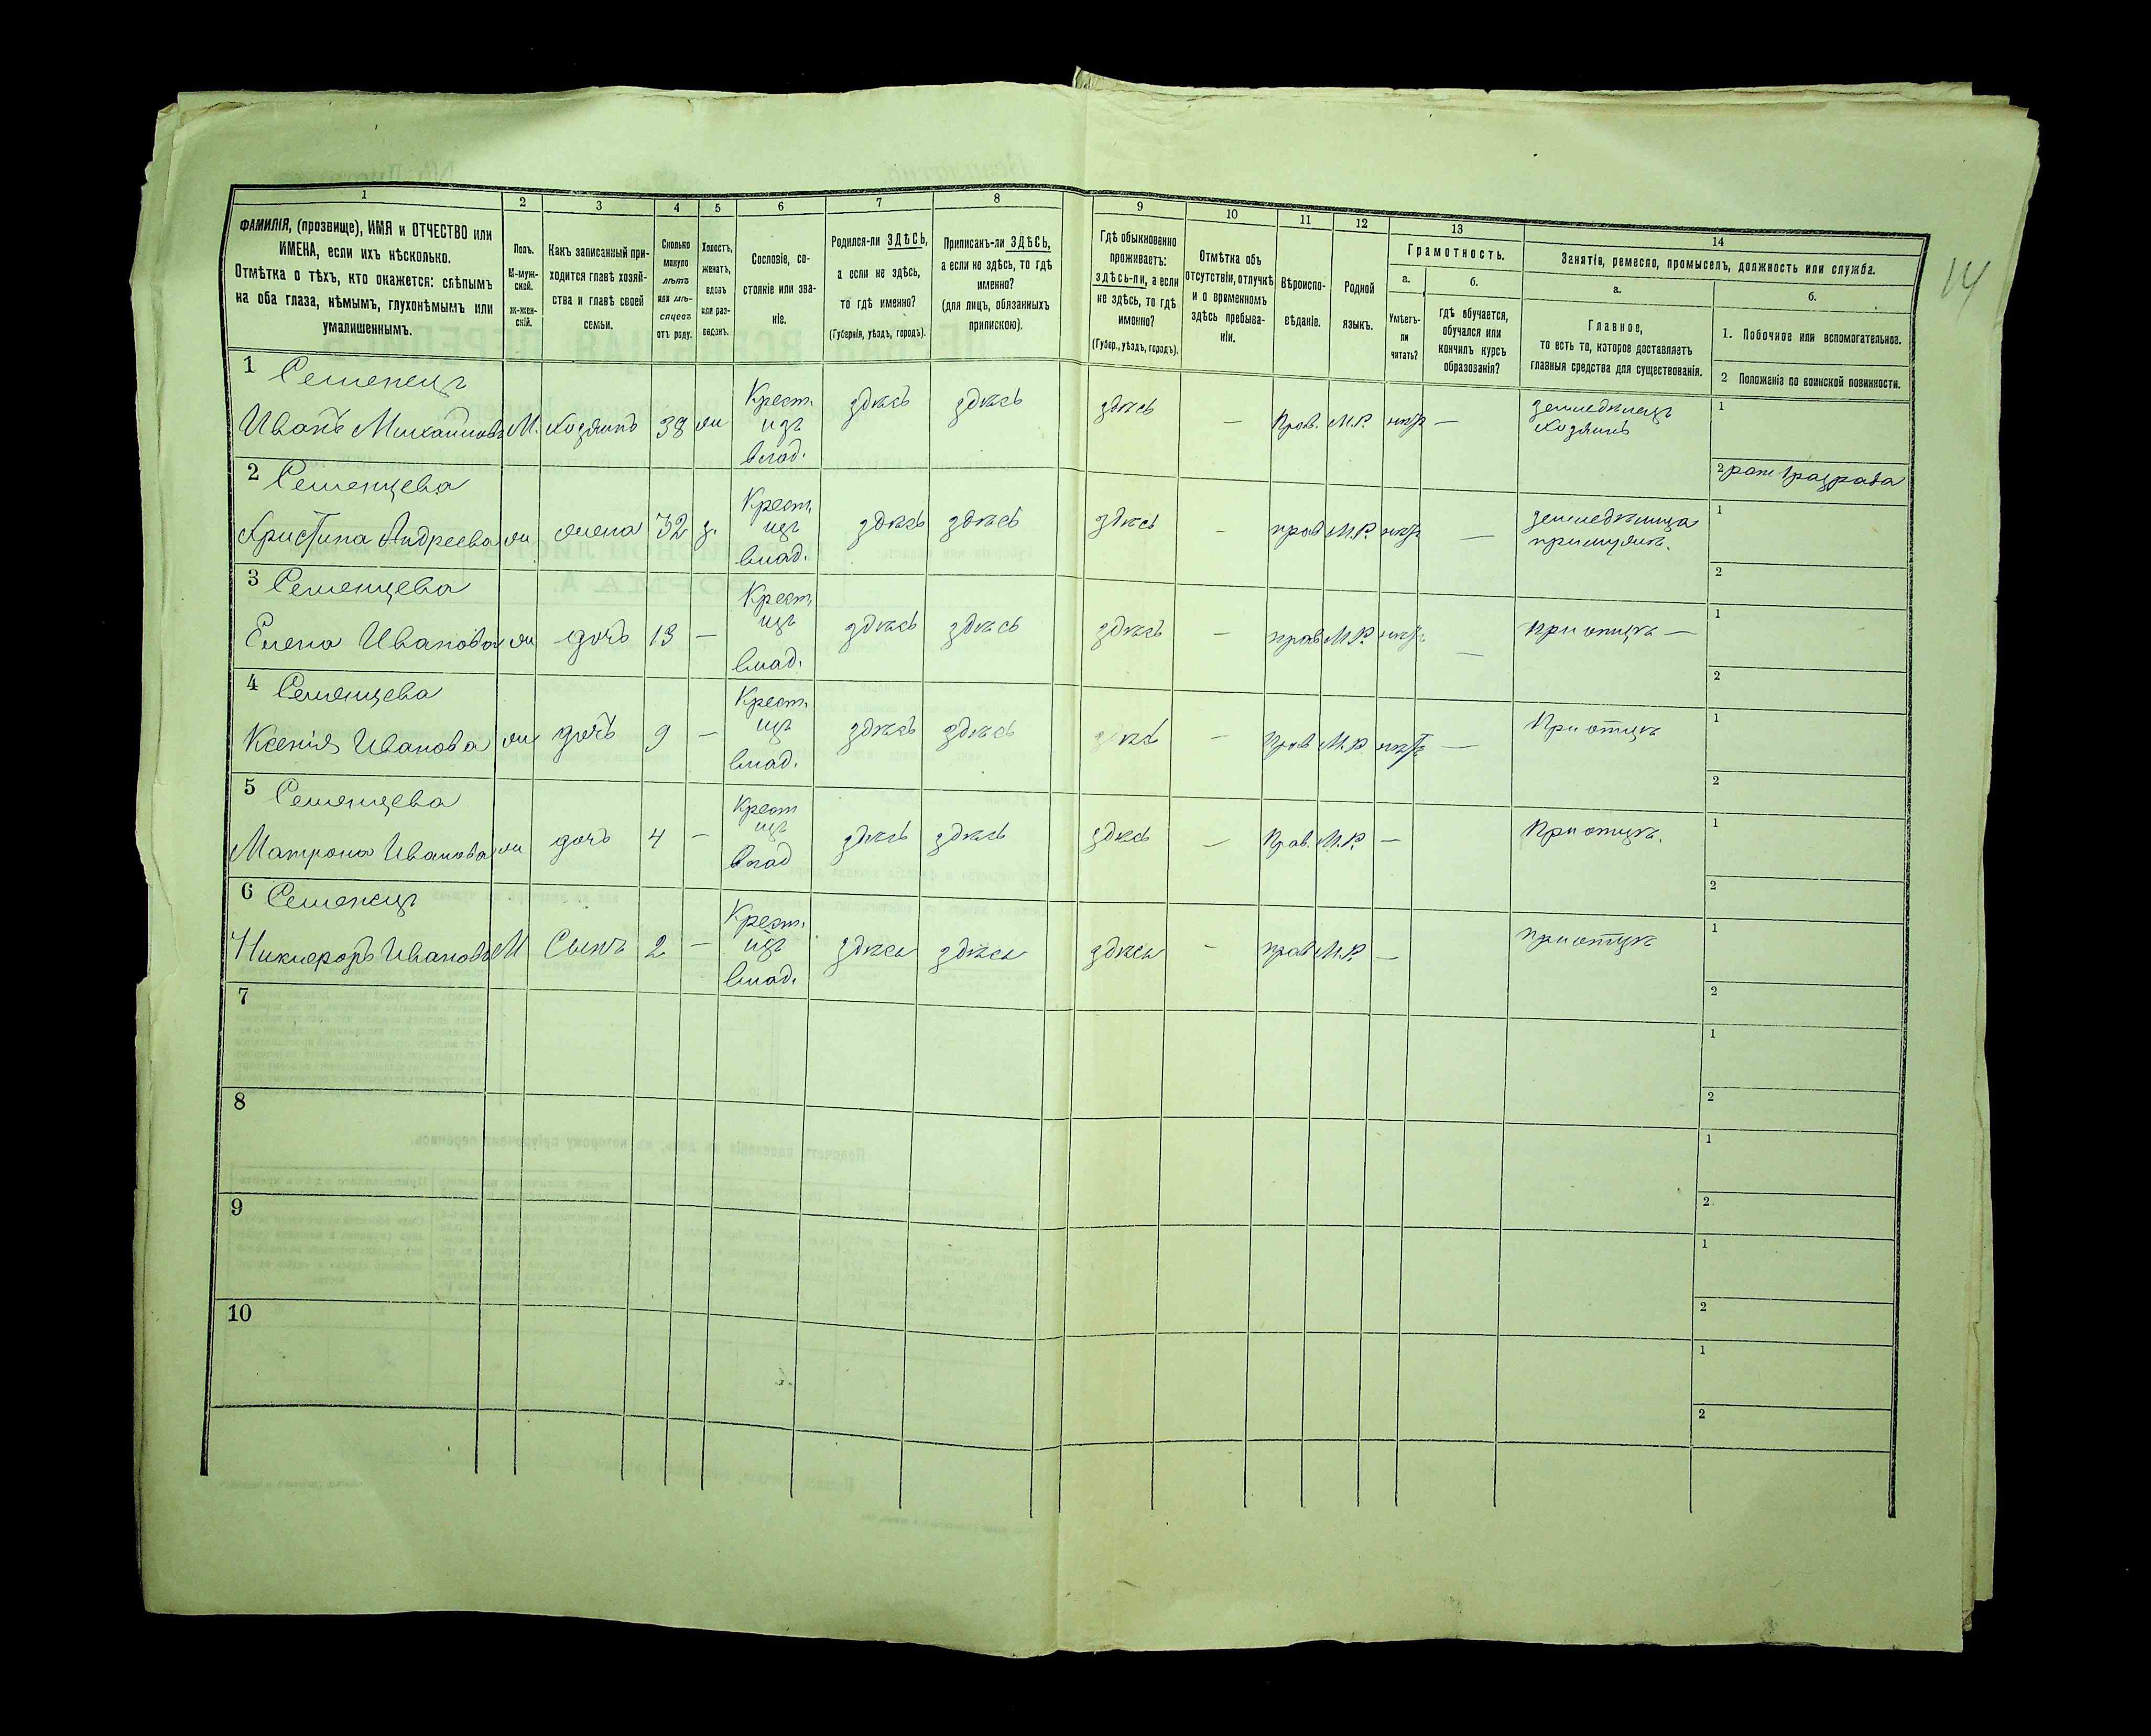 14
1 2 3 4 5 6 7 8 9 10 11 12 13 14
ФАМИЛІЯ, (прозвище), ИМЯ и ОТЧЕСТВО или
ИМЕНА, если ихъ нѣсколько.
Отмѣтка о тѣхъ, кто окажется: слѣпымъ
на оба глаза, нѣмымъ, глухонѣмымъ или
умалишеннымъ.
Полъ.
М-муж-
ской.
Ж-жен-
скій.
Какъ записанный при-
ходится главѣ хозяй-
ства и главѣ своей
семьи.
Сколько
минуло
лѣтъ
или мѣ-
сяцевъ
отъ роду.
Холостъ,
женатъ,
вдовъ
или раз-
веденъ.
Сословіе, со-
стояніе или зва-
ніе.
Родился-ли ЗДѢСЬ,
а если не здѣсь,
то гдѣ именно?
(Губернія, уѣздъ, городъ).
Приписанъ-ли ЗДѢСЬ,
а если не здѣсь, то гдѣ
именно?
(для лицъ, обязанныхъ
припискою).
Гдѣ обыкновенно
проживаетъ:
здѣсь-ли, а если
не здѣсь, то гдѣ
именно?
(Губер., уѣздъ, городъ).
Отмѣтка объ
отсутствіи, отлучкѣ
и о временномъ
здѣсь пребыва-
ніи.
Вѣроиспо-
вѣданіе.
Родной
языкъ.
Грамотность.
а.
Умѣетъ-
ли
читать?
б.
гдѣ обучается,
обучался или
кончилъ курсъ
образованія?
Занятія, ремесло, промыселъ, должность или служба.
а.
Главное,
то есть то, которое доставляетъ
главныя средства для существованія.
б.
1. Побочное или вспомогательное.
2 Положеніе по воинской повинности.
1 Семенецъ
Иванъ Михайловъ М. Хозяинъ 38 ж Крест. изъ влад. здѣсь здѣсь здѣсь — Прав. М.Р. нѣтъ — земледѣлецъ хозяинъ 1
2 рат 1 разряда
2 Семенцева
Христина Андреева ж жена 32 з. Крест. изъ влад. здѣсь здѣсь здѣсь — прав М.Р. нѣтъ — земледѣлица 1
2
3 Семенцева
Елена Иванова ж дочь 13 — Крест. изъ влад. здѣсь здѣсь здѣсь — прав М.Р. нѣтъ — При отцѣ — 1
2
4 Семенцева
Ксенія Иванова ж дочь 9 — Крест. изъ влад. здѣсь здѣсь здѣсь — прав М.Р. нѣтъ — При отцѣ 1
2
5 Семенцева
Матрона Иванова ж дочь 4 — Крест изъ влад здѣсь здѣсь здѣсь — Прав. М.Р. — При отцѣ. 1
2
6 Семенецъ
Никифоръ Ивановъ М Сынъ 2 — Крест. изъ влад. здѣсь здѣсь здѣсь — прав М.Р. — при отцѣ 1
2
7 1
2
8 1
2
9 1
2
10 1
2